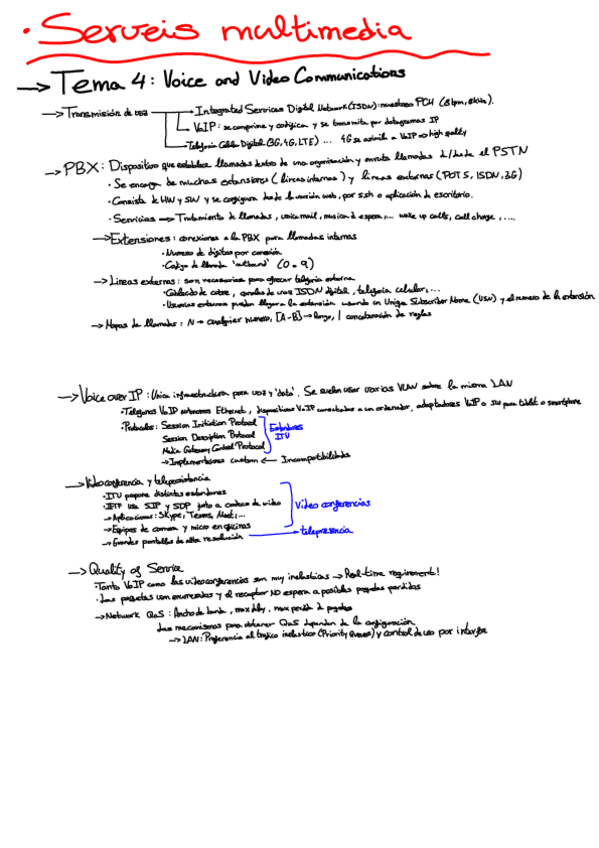 · Serveis multimedia
→ Tema 4: Voice and Video Communications
→ Transmisión de voz → Integrated Services Digital Network (ISDN): muestreo PCM (8 bpm, 8kHz).
→ VoIP: se comprime y codifica y se transmite por datagramas IP
→ Telefonía Celular Digital (3G, 4G, LTE) ... 4G se asimila a VoIP en high quality
→ PBX: Dispositivo que establece llamadas dentro de una organización y enruta llamadas d/desde el PSTN
· Se encarga de muchas extensiones (líneas internas) y líneas externas (POTS, ISDN, 3G)
· Consiste de HW y SW y se configura desde la versión web, por ssh o aplicación de escritorio.
· Servicios → Tratamiento de llamadas, voice mail, musica d espera, ... wake up calls, call charge, ....
→ Extensiones: conexiones a la PBX para llamadas internas
· Numero de digitos por conexión
· Codigo de llamada "outbound" (0 o 9)
→ Lineas externas: son necesarias para ofrecer telefonía externa
· Cableado de cobre, canales de voz ISDN digital, telefonía celular, ...
· Usuarios externos pueden llegar a la extensión usando un Unique Subscriber Name (USN) y el numero de la extensión
→ Mapas de llamadas: N → cualquier numero, [A-B] → rango, | concatenación de reglas
→ Voice over IP: Unica infraestructura para voz y 'data'. Se suelen usar varias VLAN sobre la misma LAN
· Telefonos VoIP autonomos Ethernet, dispositivos VoIP conectados a un ordenador, adaptadores VoIP o SW para tablet o smartphone
· Protocolos: Session Initiation Protocol
Session Description Protocol
Media Gateway Control Protocol
Estándares
ITU
→ Implementaciones custom ← Incompatibilidades
→ Videoconferencia y telepresencia
· ITU propone distintos estandares
· IETF usa SIP y SDP junto a codecs de video
→ Aplicaciones: Skype, Teams, Meet, ...
→ Equipos de camara y micro en oficinas
Video conferencias
→ Grandes pantallas de alta resolución — telepresencia
→ Quality of Service
· Tanto VoIP como las videoconferencias son muy inelasticas → Real-time requirement!
· Los paquetes van enumerados y el receptor NO espera a posibles paquetes perdidos
→ Network QoS: Ancho de banda, max delay, max perdida d paquetes
Los mecanismos para obtener QoS dependen de la configuración
→ LAN: Preferencia al trafico inelastico (Priority Queues) y control de uso por interfaz